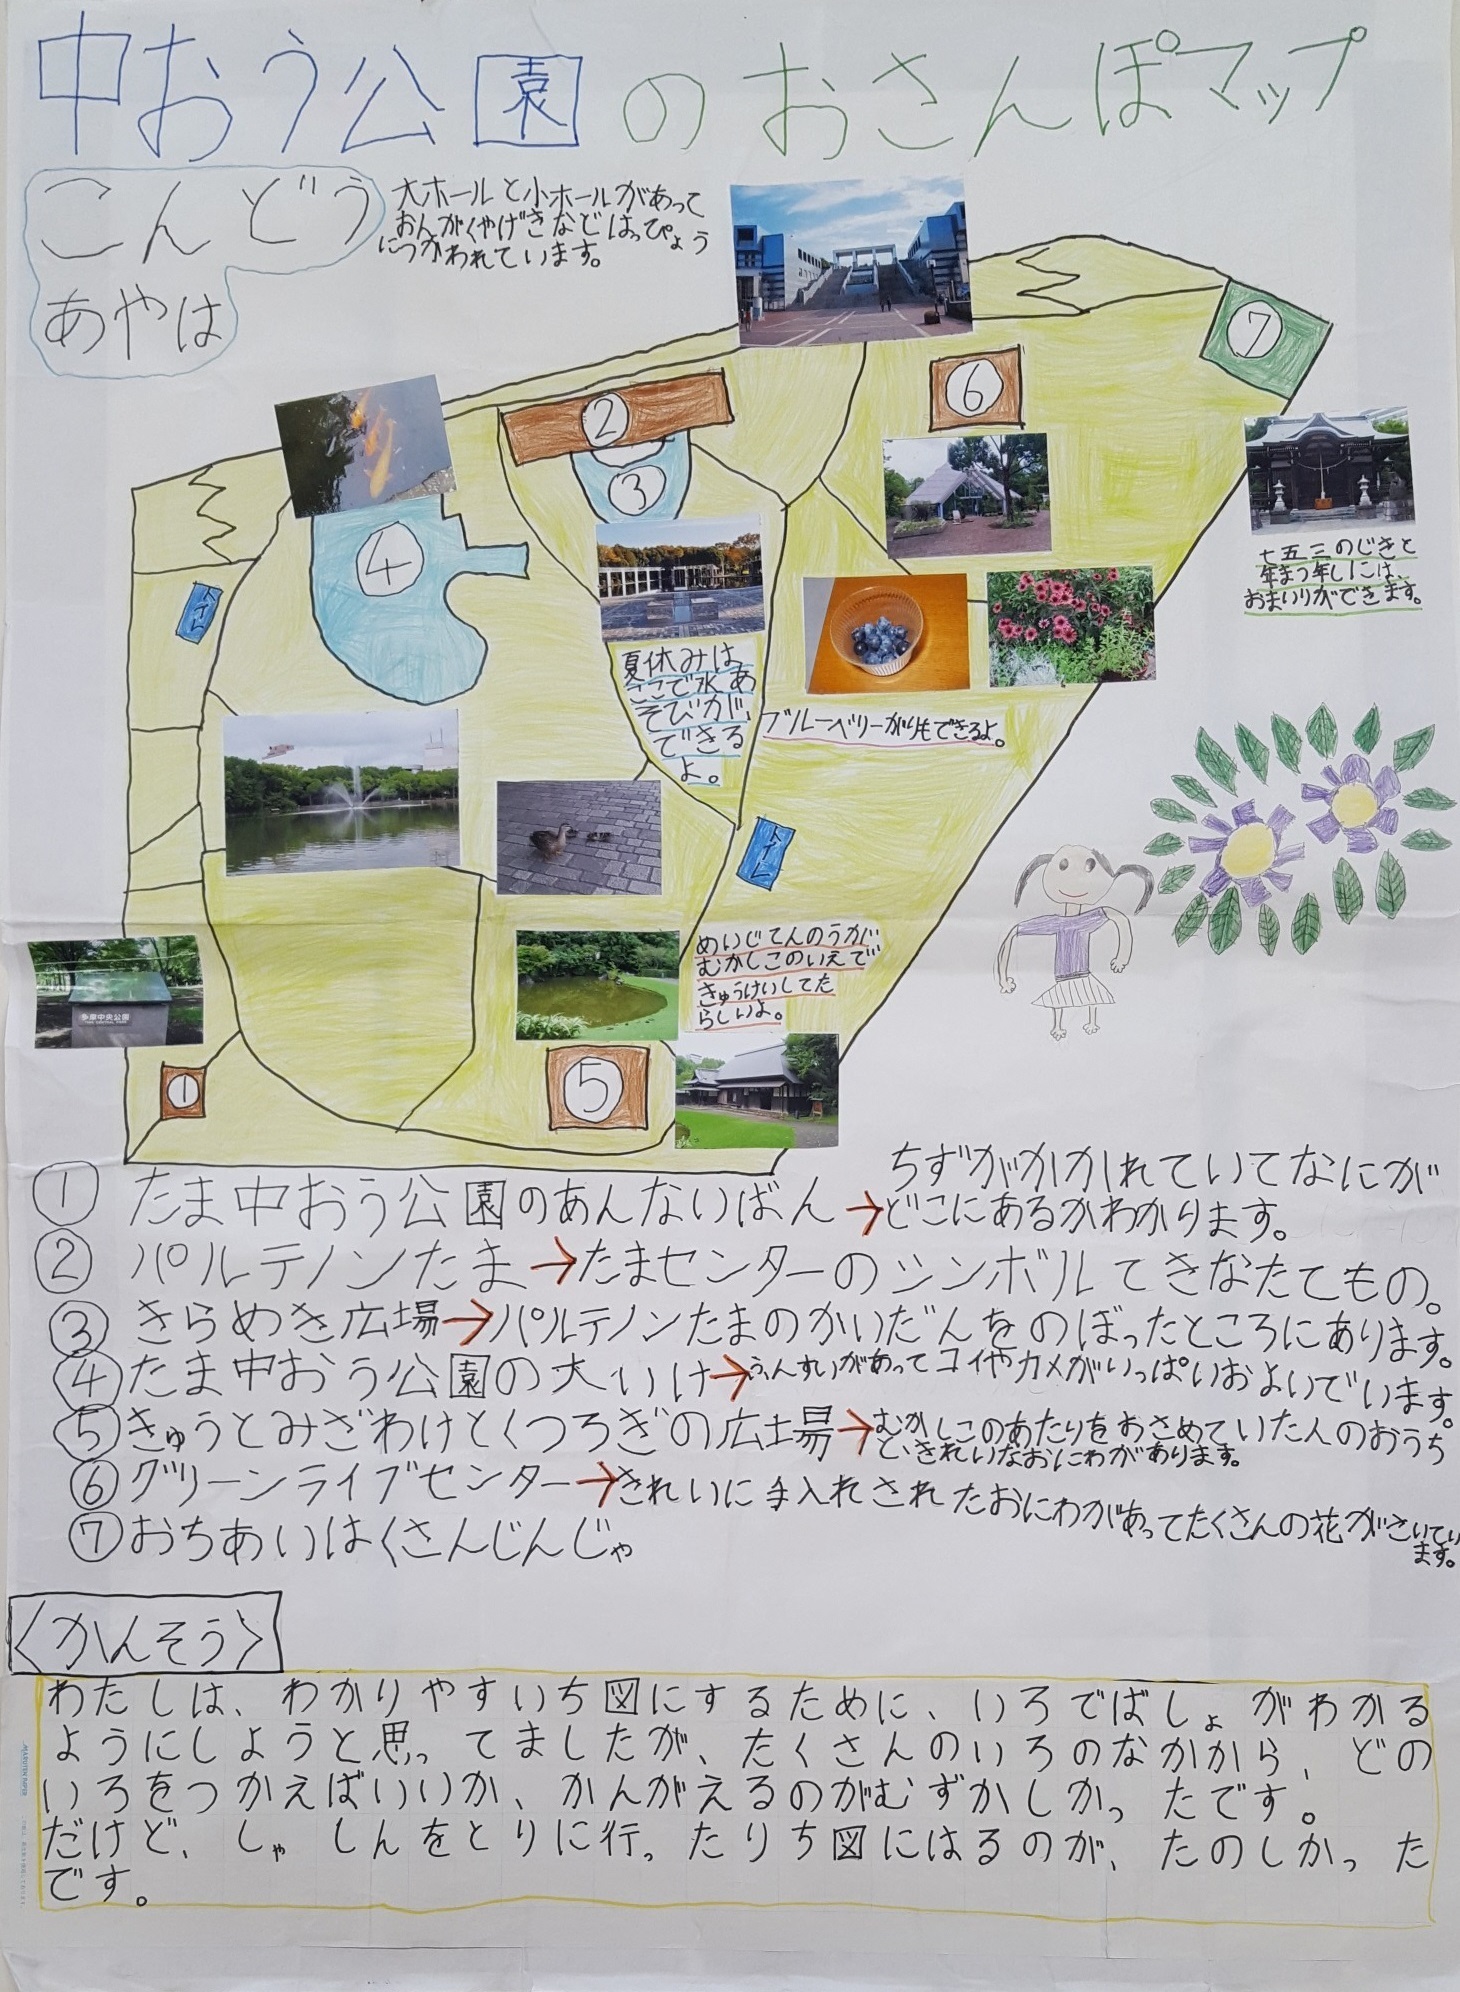 中おう公園のおさんぽマップ
こんどう
あやは
大ホールと小ホールがあって
おんがくやげきなどはっぴょう
につかわれています。
7
6
2
3
4
トイレ
七五三のじきと
年まつ年しには、
おまいりができます。
夏休みは、
ここで水あ
そびが、
できる
よ。
ブルーベリーがりもできるよ。
トイレ
めいじてんのうが
むかしこのいえで
きゅうけいしてた
らしいよ。
多摩中央公園
1
5
① たま中おう公園のあんないばん→ちずがかかれていてなにが
どこにあるかわかります。
② パルテノンたま→たまセンターのシンボルてきなたてもの。
③ きらめき広場→パルテノンたまのかいだんをのぼったところにあります。
④ たま中おう公園の大いけ→ふんすいがあってコイやカメがいっぱいおよいでいます。
⑤ きゅうとみざわけとくつろぎの広場→むかしこのあたりをおさめていた人のおうち
と、きれいなおにわがあります。
⑥ グリーンライブセンター→きれいに手入れされたおにわがあってたくさんの花がさいてい
ます。
⑦ おちあいはくさんじんじゃ
〈かんそう〉
わたしは、わかりやすいち図にするために、いろでばしょがわかる
ようにしようと思ってましたが、たくさんのいろのなかから、どの
いろをつかえばいいか、かんがえるのがむずかしかったです。
だけど、しゃしんをとりに行ったりち図にはるのが、たのしかった
です。